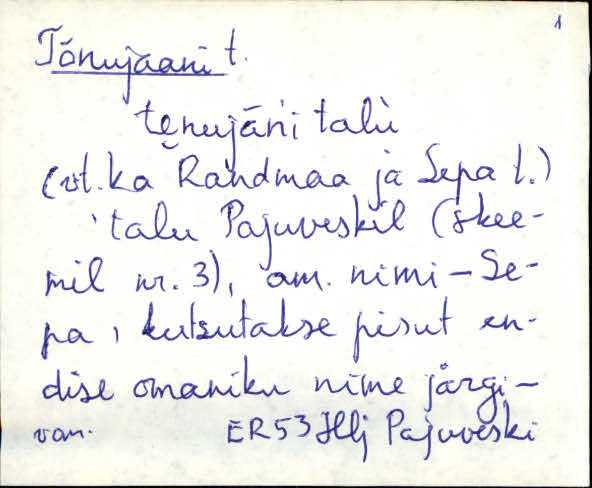 1
Tõnujaani t.
te̮nujāni talù
(vt. ka Randmaa ja Sepa t.)
talu Pajuveskil (skee-
mil nr. 3), am. nimi - Se-
pa, kutsutakse pisut en-
dise omaniku nime järgi -
van. ER53 Hlj Pajuveski